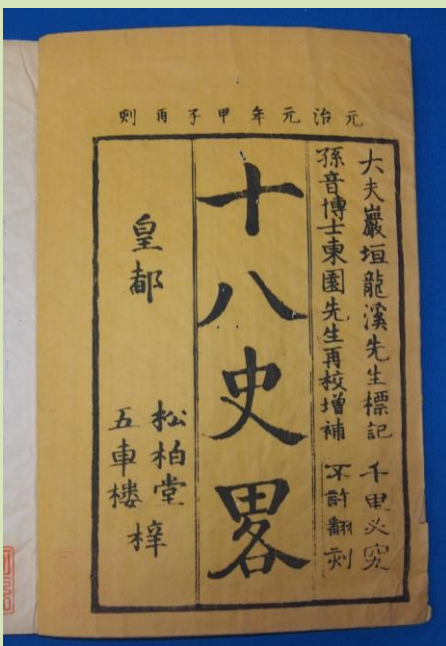 元治元年甲子再刻
大夫巖垣龍溪先生標記
千里必究
孫音博士東園先生再校增補
不許翻刻
十八史畧
皇都
松柏堂
五車楼
梓